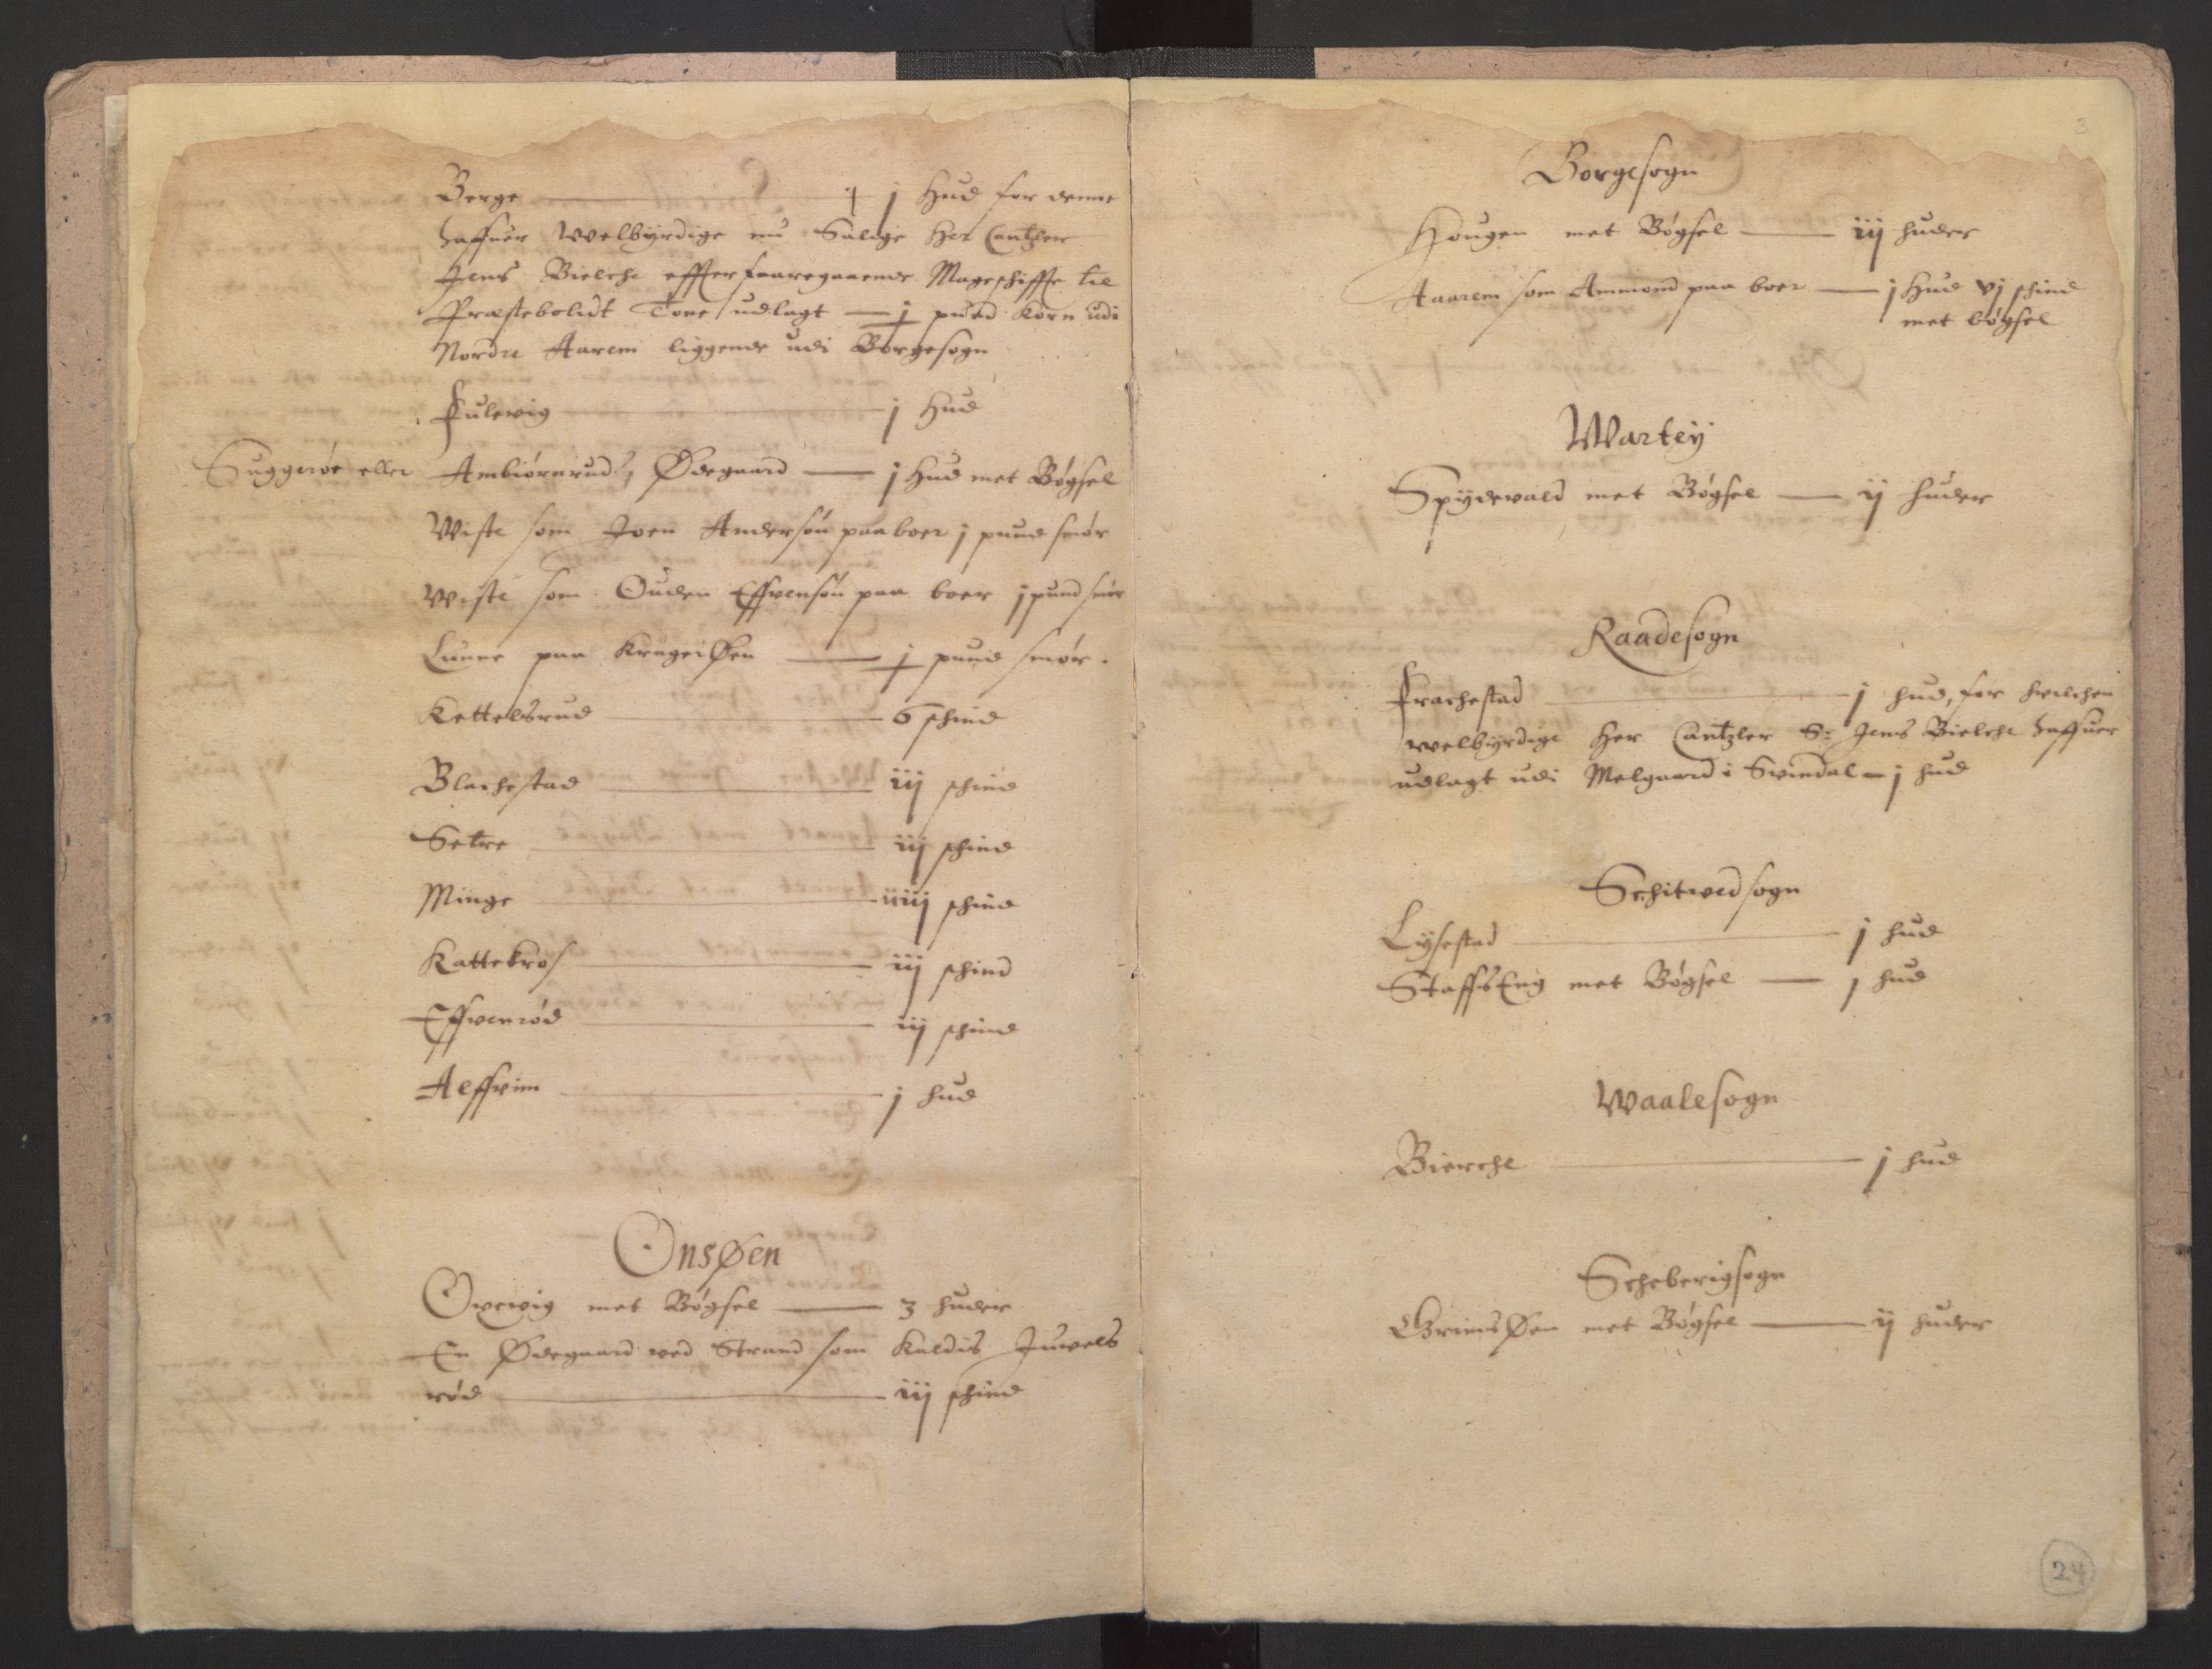 Berge — j Hud for denne
haffuer Welbyrdige nu Salige Her Cantzler
Jens Bielche effter foaregaaende Mageschiffte til
Præsteboldt Tone udlagt — j pund Korn udi
Nordre Aarem liggende udi Borgesogn
Fulewig — j Hud
Suggerøe eller Ambiørnrud, Ødegaard — j Hud met Bøgsel
Wiste som Joen Andersøn paa boer j pund smør
Wiste som Ouden Effvensøn paa boer j pund smør
Lunne paa KragerØen — j pund smør.
Kettelsrud — 6 schind
Blachestad — iij schind
Setre — iij schind
Minge — iiiij schind
Kattekros — iij schind
Effvenrød — iij schind
Alffvim — j hud
OnsØen
Ovewig met Bøgsel — 3 huder
En Ødegaard ved Strand som Kaldis Juvels
rød — iij schind
3
Borgesogn
Hougen met Bøgsel — iij huder
Aaarem som Ammond paa boer — j Hud vj schind
met bøgsel
Wartey
Spydevald met Bøgsel — ij huder
Raadesogn
Frachestad — j hud, for hvilchen
welbyrdige Her Cantzler S: Jens Bielche haffuer
udlagt udi Melgaard i Svindal — j hud
Schitvedsogn
Lysestad — j hud
StaffsEng met Bøgsel — j hud
Waalesogn
Bierche — j hud
Scheberigsogn
GrimsØen met Bøgsel — ij huder
24